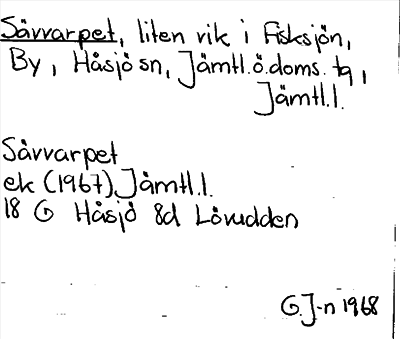 Såvvarpet, liten vik i Fisksjön,
By, Håsjö sn, Jämtl.ö.doms. tg,
Jämtl.l.
Såvvarpet
ek (1967) Jämtl.l.
18 G Håsjö 8d Lövudden
G.J-n 1968